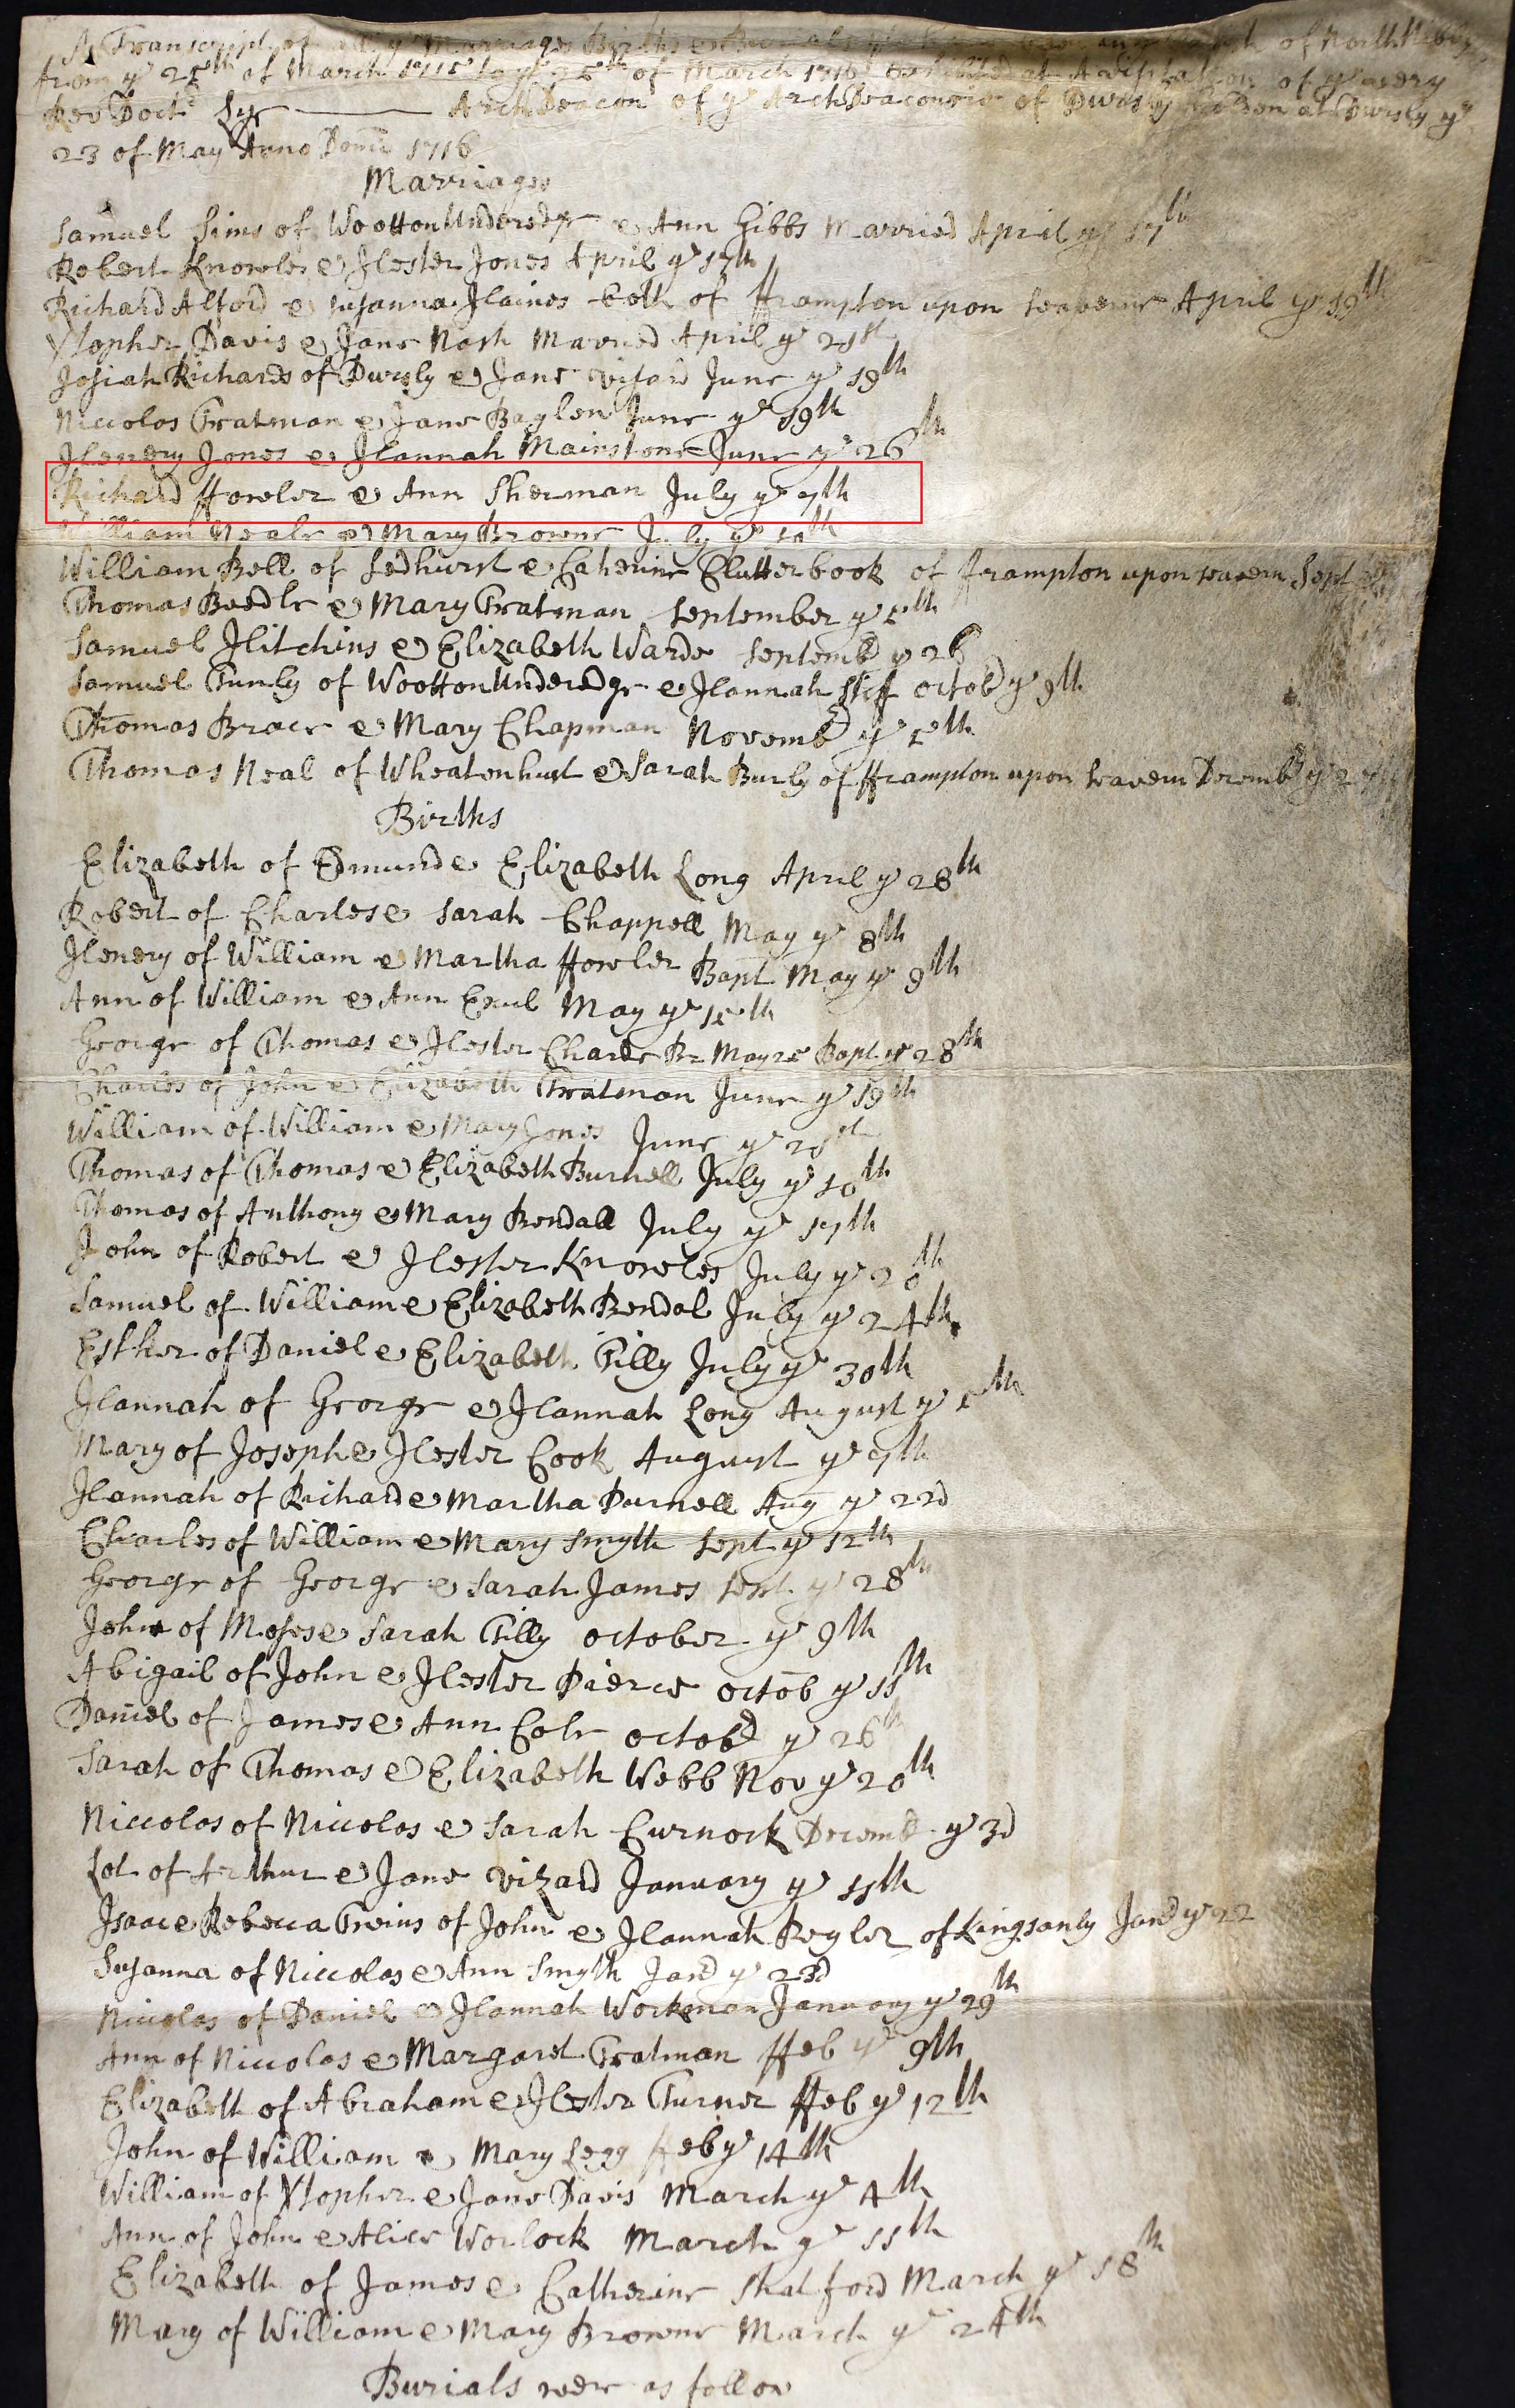 A Transcript of all ye Marriages Births & Burials of North Nibley
from ye 25th of March 1715 to ye 25th of March 1716 Exhibited at A visitation of ye very
Rev Doctr Lye Arch Deacon of ye Arch Deaconrie of Dursly holden at Dursly ye
23 of May Anno Domi 1716
Marriages
Samuel Sims of Wootton Underedge & Ann Gibbs Married April ye 17th
Robert Knowles & Hester Jones April ye 17th
Richard Alford & Susanna Haines both of Frampton upon Seaverne April ye 19th
Xtopher Davis & Jane Nash Married April ye 21st
Josiah Richards of Dursly & Jane Visard June ye 19th
Niccolos Tratman & Jane Baglen June ye 19th
Henery Jones & Hannah Mainstone June ye 26th
Richard ffowler & Ann Sherman July ye 7th
William Neale & Mary Browne July ye 10th
William Bell of Ledhurst & Catherine Clutterbook of frampton upon seavern Sept
Thomas Beedle & Mary Tratman September ye 5th
Samuel Hitchins & Elizabeth Warde Septembr ye 26
Samuel Turnly of Wootton Underedge & Hannah Stiff Octobr ye 9th
Thomas Brace & Mary Chapman Novembr ye 5th
Thomas Neal of Wheatenhurst & Sarah Burly of fframpton upon Seavern Decembr ye
Births
Elizabeth of Edmund & Elizabeth Long April ye 28th
Robert of Charles & Sarah Chappell May ye 8th
Henery of William & Martha ffowler Bapt May ye 9th
Ann of William & Ann Exul May ye 15th
George of Thomas & Hester Charde Br May 25 Bapt ye 28th
Charles of John & Elizabeth Tratman June ye 19th
William of William & Mary Jones June ye 21st
Thomas of Thomas & Elizabeth Burnell July ye 10th
Thomas of Anthony & Mary Bendall July ye 17th
John of Robert & Hester Knowles July ye 20th
Samuel of William & Elizabeth Bendal July ye 24th
Esther of Daniel & Elizabeth Tilly July ye 30th
Hannah of George & Hannah Long August ye 5th
Mary of Joseph & Hester Cook August ye 7th
Hannah of Richard & Martha Durnell Aug ye 22d
Charles of William & Mary Smyth Sept ye 12th
George of George & Sarah James Sept ye 28th
John of Moses & Sarah Tilly October ye 9th
Abigail of John & Hester Pierce Octob ye 11th
Daniel of James & Ann Cole Octobr ye 26th
Sarah of Thomas & Elizabeth Webb Nov ye 20th
Niccolos of Niccolos & Sarah Curnock Decemb ye 3d
Lot of Arthur & Jane Vizard January ye 11th
Isaac & Rebecca Twins of John & Hannah Pegler of Kingsanly Janr ye 22
Susanna of Niccolas & Ann Smyth Janr ye 23d
Niccolas of Daniel & Hannah Workman January ye 29th
Ann of Niccolas & Margaret Tratman ffeb ye 9th
Elizabeth of Abraham & Hester Turner ffeb ye 12th
John of William & Mary Legg ffeb ye 14th
William of Xtopher & Jane Davis March ye 4th
Ann of John & Alice Worlock March ye 11th
Elizabeth of James & Catherine Shatford March ye 18th
Mary of William & Mary Browne March ye 24th
Burials were as follow